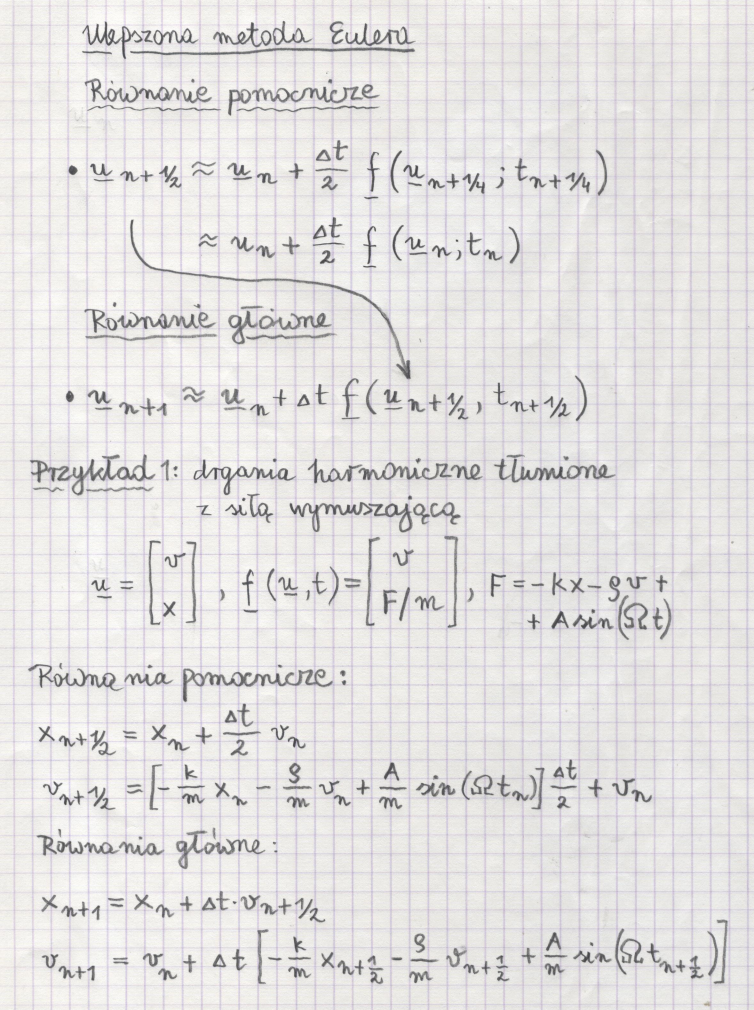 Ulepszona metoda Eulera
Równanie pomocnicze
• u n+1/2 ≈ u n + Δt/2 f (u n+1/4 ; t n+1/4)
≈ u n + Δt/2 f (u n ; t n)
Równanie główne
• u n+1 ≈ u n + Δt f (u n+1/2 , t n+1/2)
Przykład 1: drgania harmoniczne tłumione
z siłą wymuszającą
u = [v x] , f (u, t) = [v F/m] , F = -kx - ρv +
+ A sin(Ωt)
Równania pomocnicze:
x n+1/2 = x n + Δt/2 v n
v n+1/2 = [- k/m x n - ρ/m v n + A/m sin (Ωt n)] Δt/2 + v n
Równania główne:
x n+1 = x n + Δt · v n+1/2
v n+1 = v n + Δt [- k/m x n+1/2 - ρ/m v n+1/2 + A/m sin (Ωt n+1/2)]